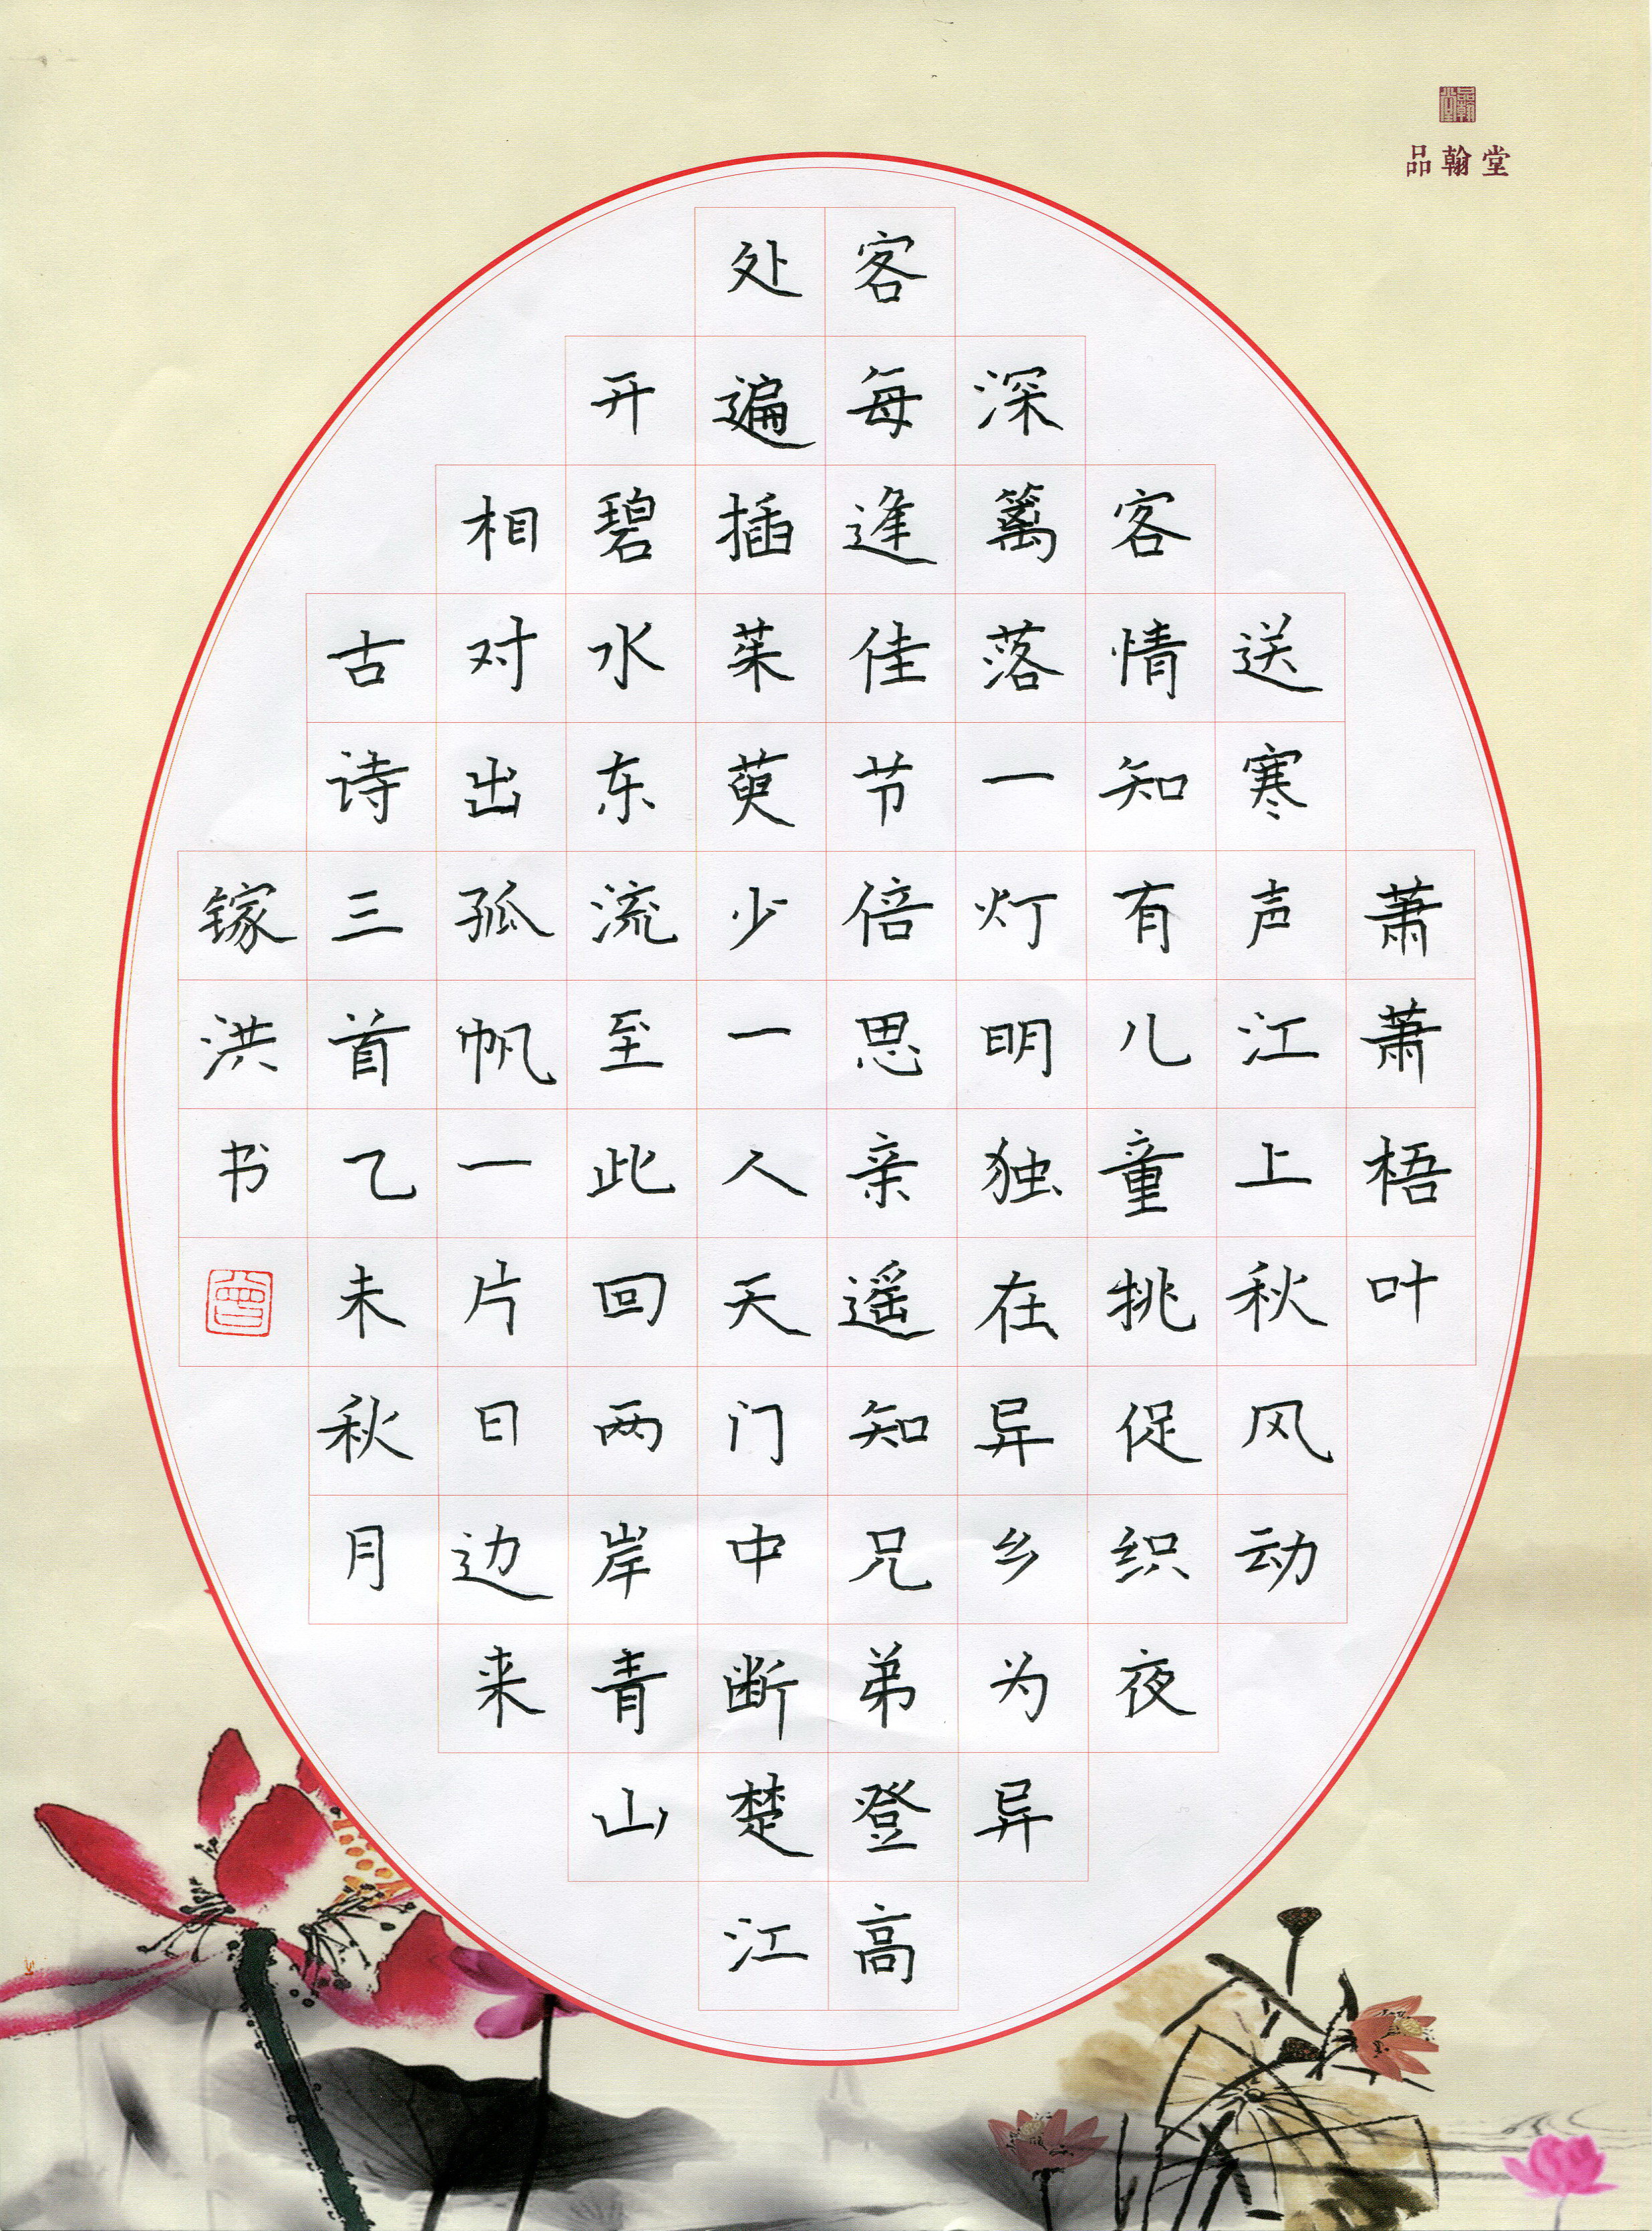 品翰堂
品翰堂
萧萧梧叶
送寒声江上秋风动
客情知有儿童挑促织夜
深篱落一灯明独在异乡为异
客每逢佳节倍思亲遥知兄弟登高
处遍插茱萸少一人天门中断楚江
开碧水东流至此回两岸青山
相对出孤帆一片日边来
古诗三首乙未秋月
镓洪书
曾